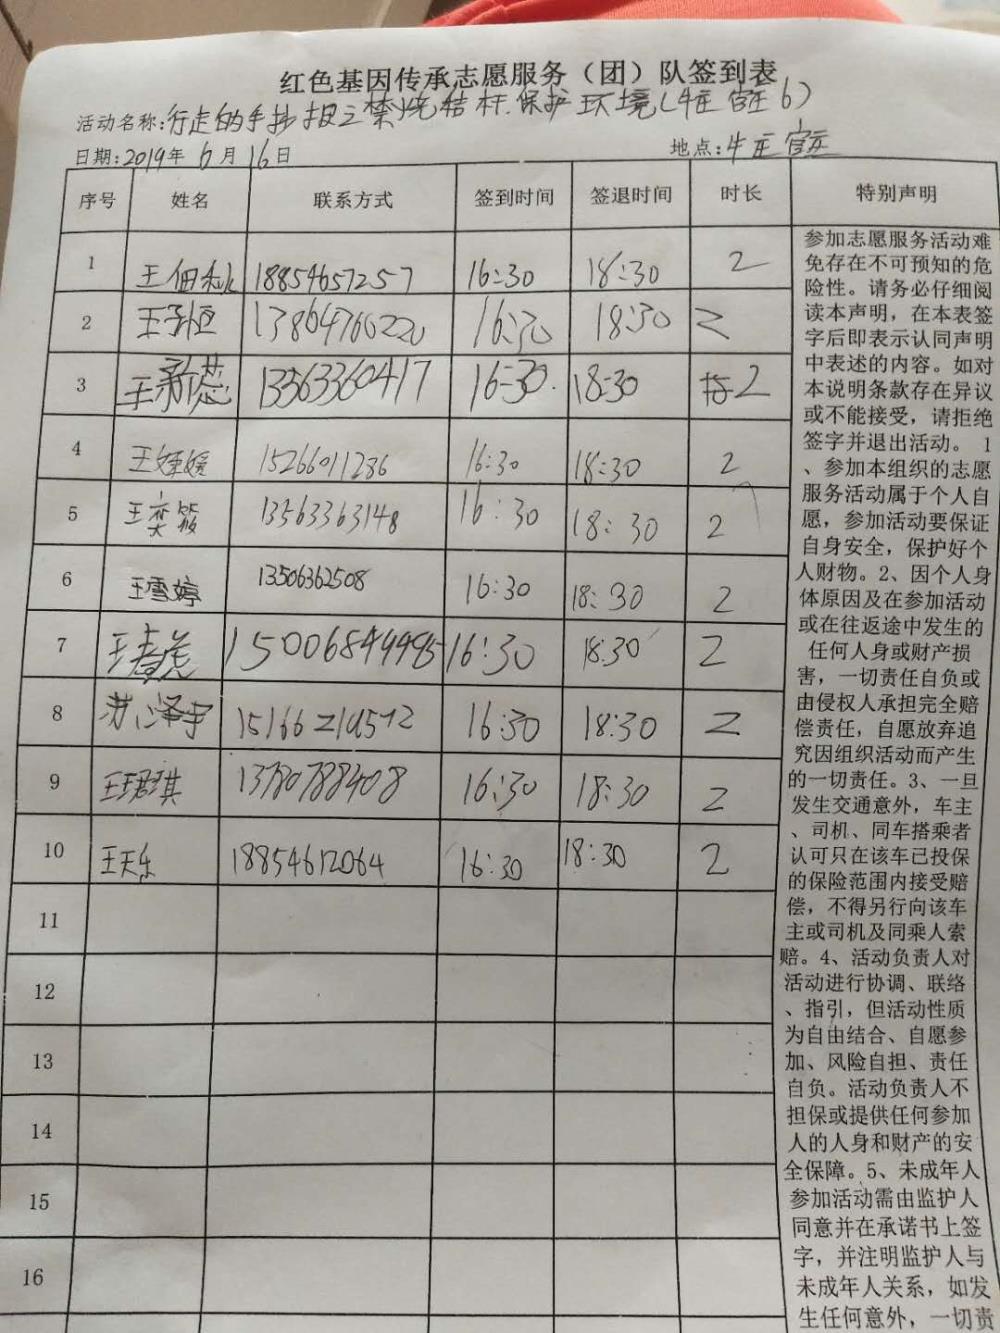 红色基因传承志愿服务（团）队签到表
活动名称:行走的手抄报之禁烧秸秆.保护环境(牛庄官庄6)
日期:2019年6月16日 地点:牛庄官庄
序号 姓名 联系方式 签到时间 签退时间 时长 特别声明
1 王佃秋 18854657257 16:30 18:30 2
2 王子恒 13864760220 16:30 18:30 2
3 王新蕊 13563360417 16:30 18:30 2
4 15266011236 16:30 18:30 2
5 王奕筱 13563363148 16:30 18:30 2
6 王雪婷 13506362508 16:30 18:30 2
7 16:30 18:30 2
8 16:30 18:30 2
9 王珺琪 13780788408 16:30 18:30 2
10 王天乐 18854612064 16:30 18:30 2
11
12
13
14
15
16
参加志愿服务活动难
免存在不可预知的危
险性。请务必仔细阅
读本声明，在本表签
字后即表示认同声明
中表述的内容。如对
本说明条款存在异议
或不能接受，请拒绝
签字并退出活动。1
、参加本组织的志愿
服务活动属于个人自
愿，参加活动要保证
自身安全，保护好个
人财物。2、因个人身
体原因及在参加活动
或在往返途中发生的
任何人身或财产损
害，一切责任自负或
由侵权人承担完全赔
偿责任，自愿放弃追
究因组织活动而产生
的一切责任。3、一旦
发生交通意外，车主
、司机、同车搭乘者
认可只在该车已投保
的保险范围内接受赔
偿，不得另行向该车
主或司机及同乘人索
赔。4、活动负责人对
活动进行协调、联络
、指引，但活动性质
为自由结合、自愿参
加、风险自担、责任
自负。活动负责人不
担保或提供任何参加
人的人身和财产的安
全保障。5、未成年人
参加活动需由监护人
同意并在承诺书上签
字，并注明监护人与
未成年人关系，如发
生任何意外，一切责